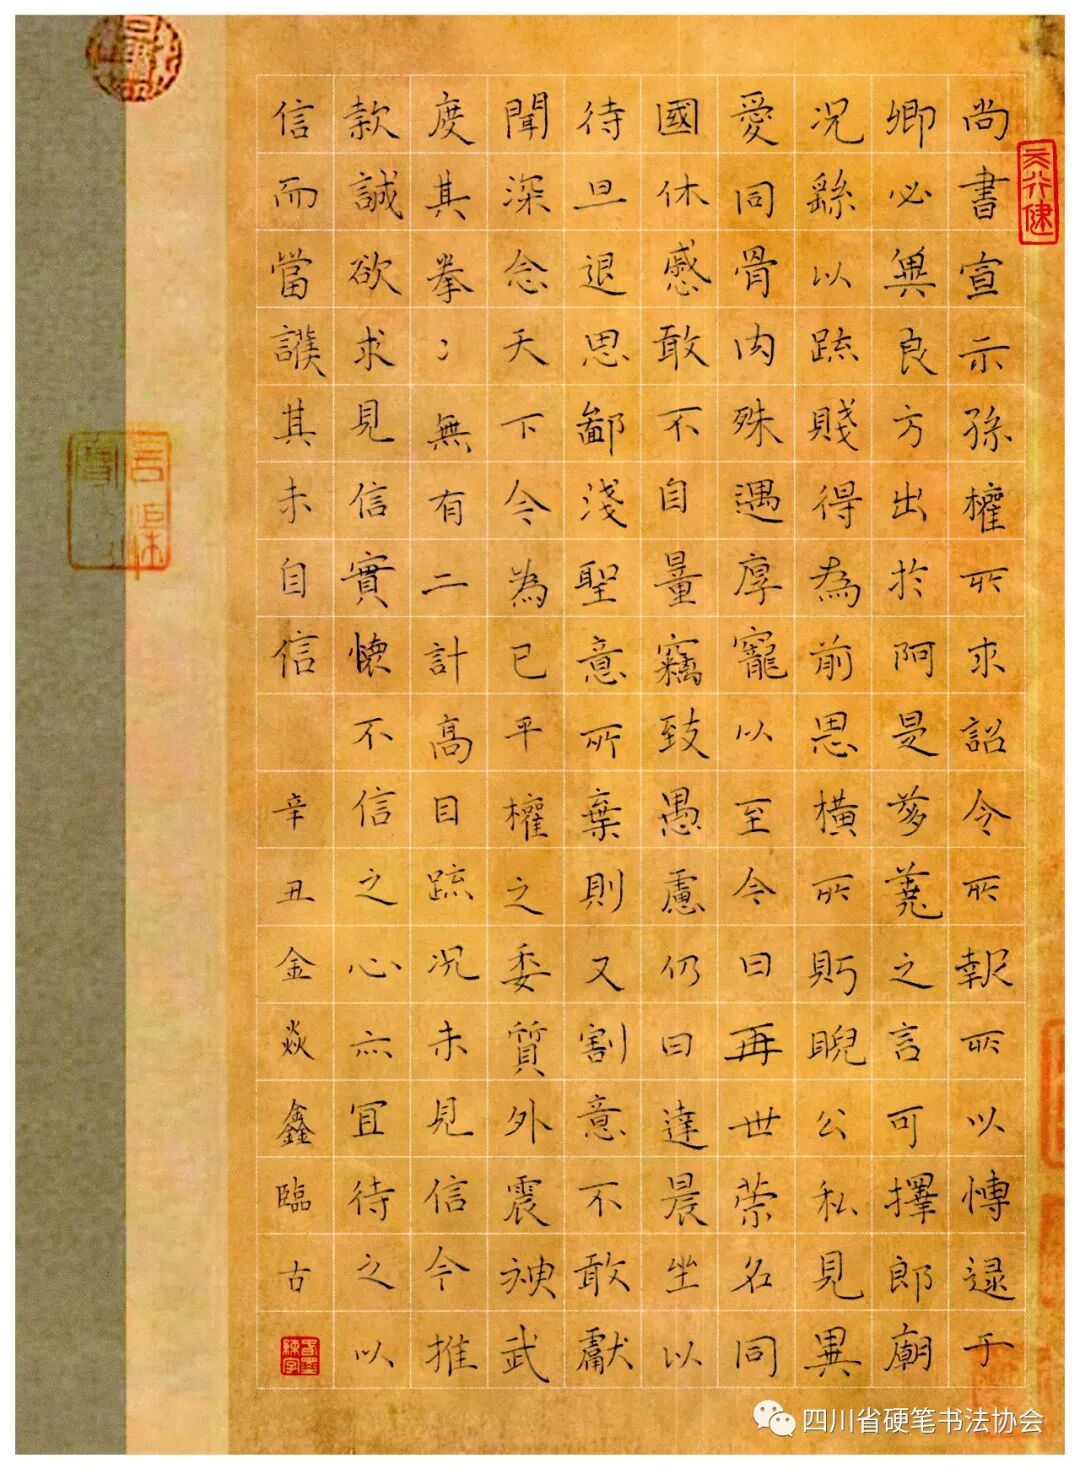 尚書宣示孫權所求詔令所報所以博逮于
卿必冀良方出於阿是芻蕘之言可擇郎廟
况繇以疏賤得為前恩橫所眄睨公私見異
愛同骨肉殊遇厚寵以至今日再世榮名同
國休慼敢不自量竊致愚慮仍日達晨坐以
待旦退思鄙淺聖意所棄則又割意不敢獻
聞深念天下今為已平權之委質外震神武
度其拳〻無有二計高目疏况未見信今推
款誠欲求見信實懷不信之心亦宜待之以
信而當護其未自信 辛丑金焱鑫臨古
天行健
四川省硬笔书法协会